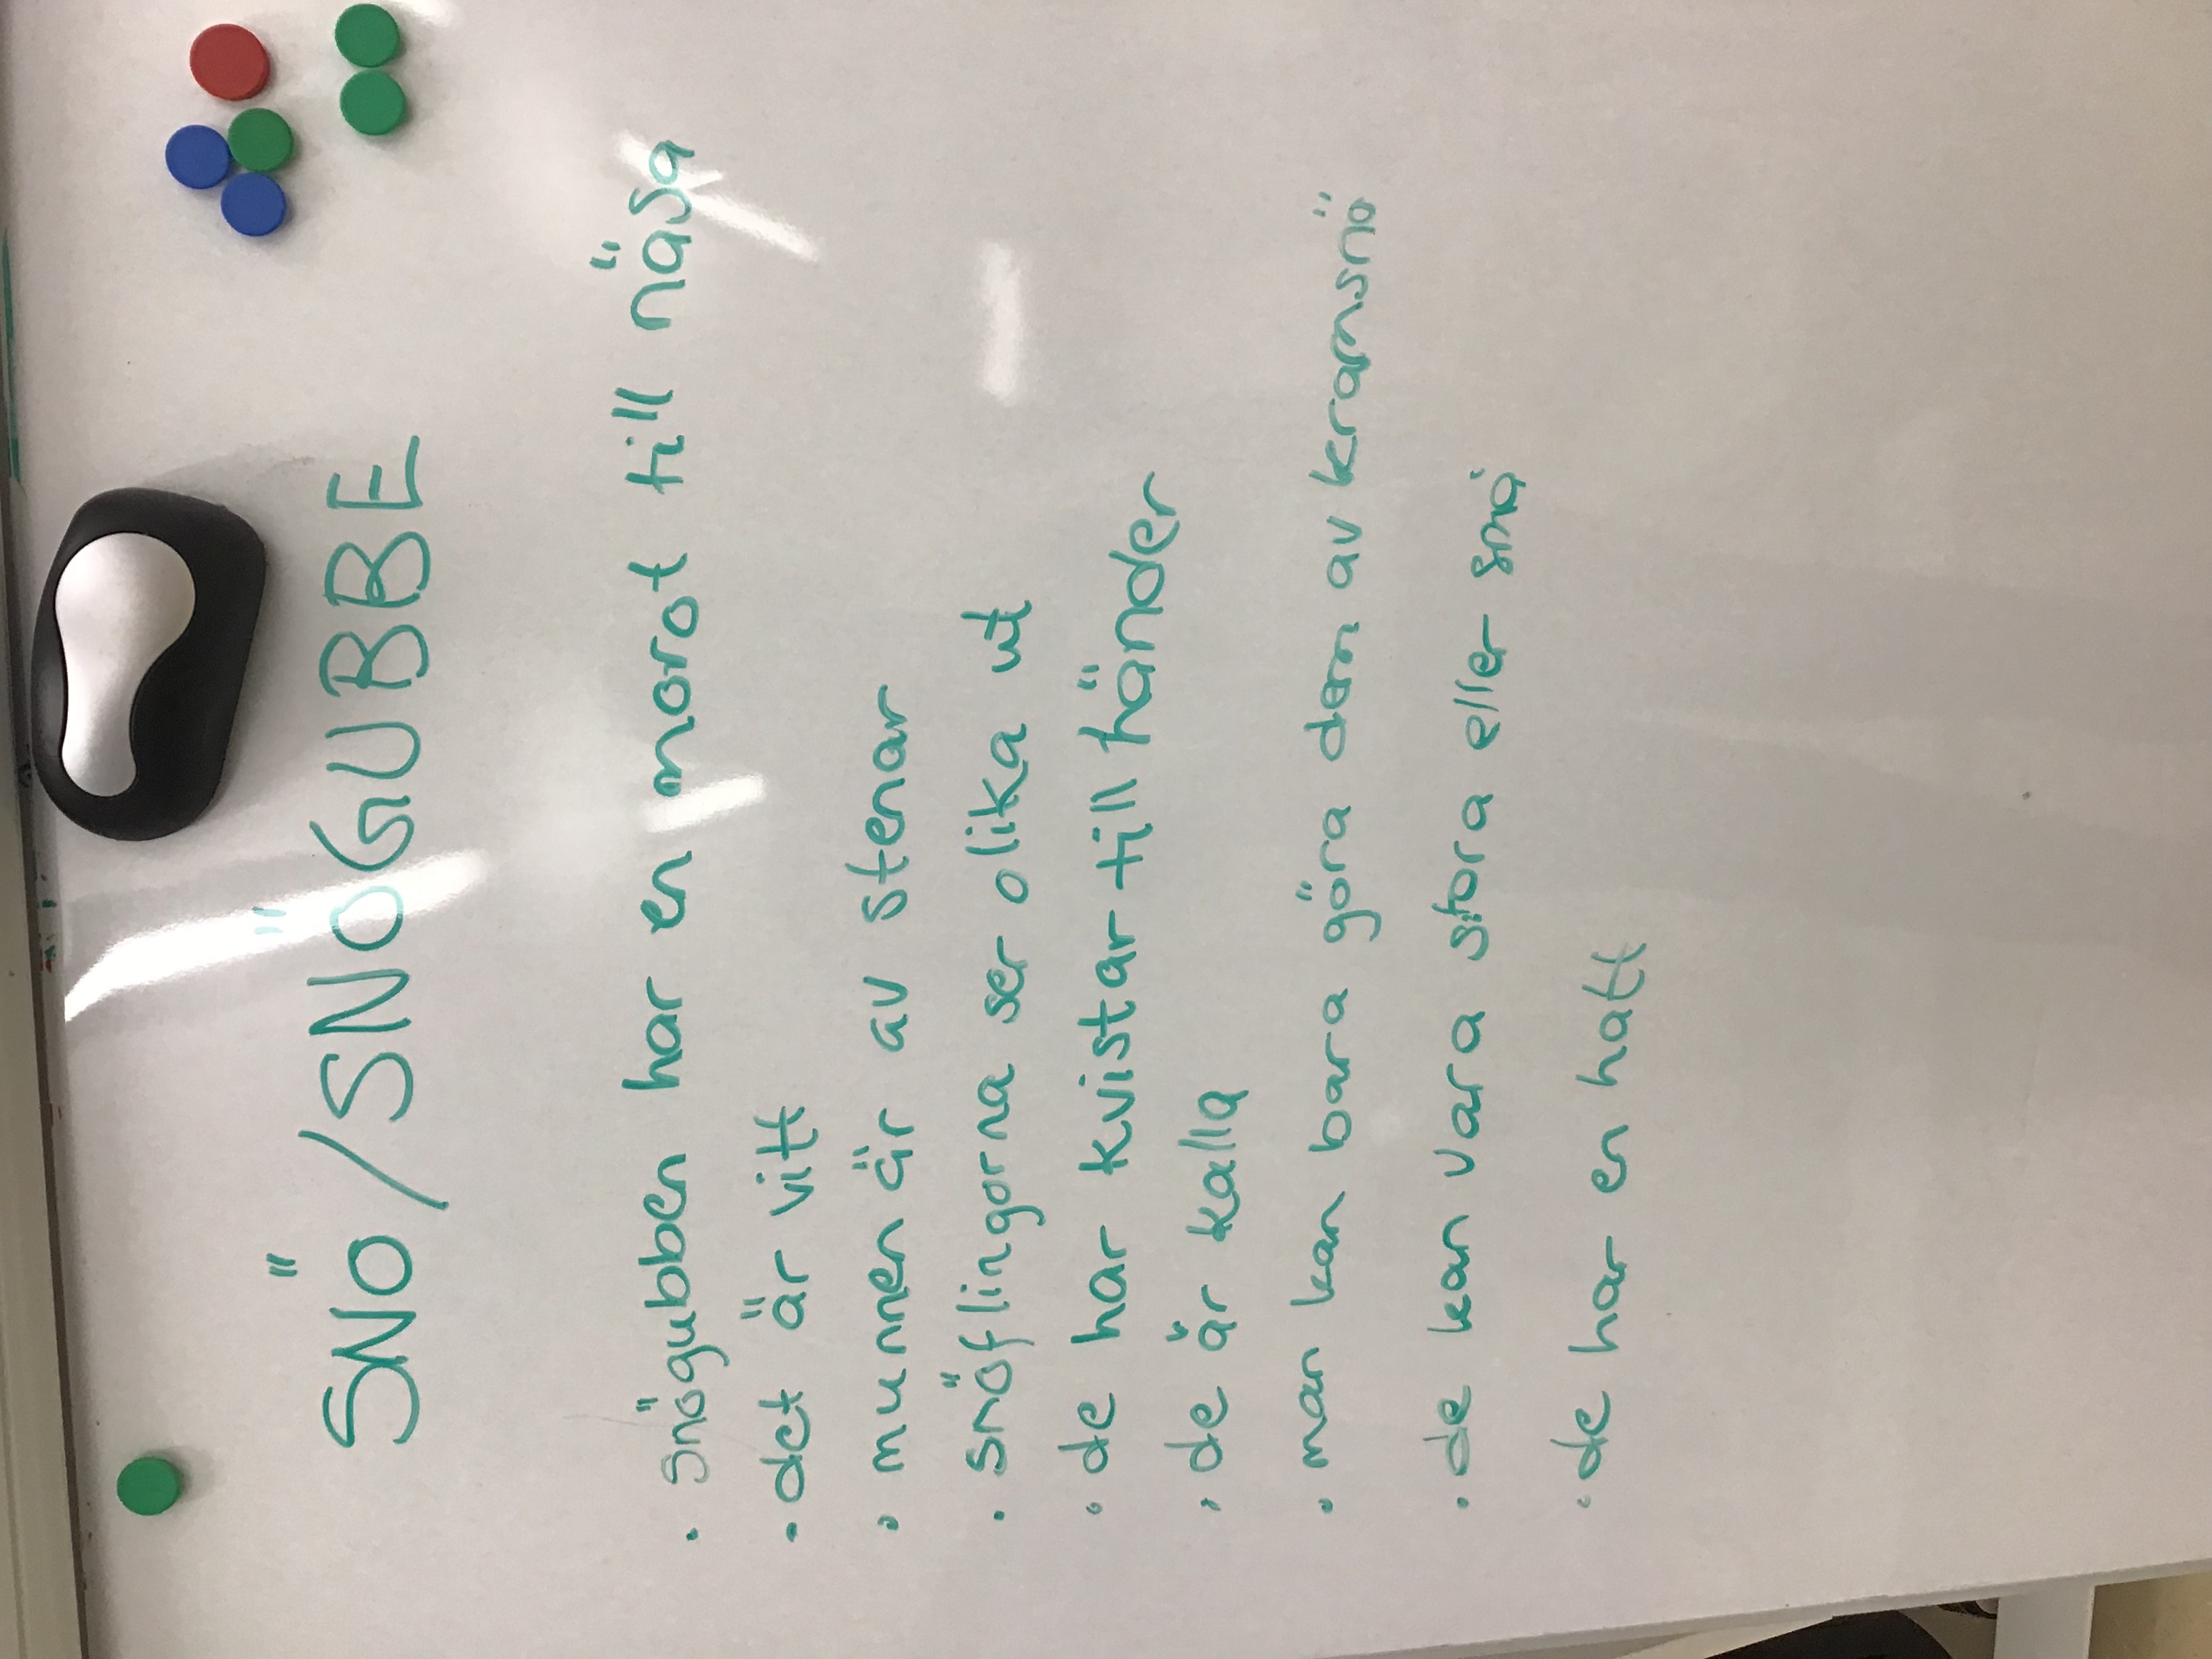 SNÖ/SNÖGUBBE
· snögubben har en morot till näsa
· det är vitt
· munnen är av stenar
· snöflingorna ser olika ut
· de har kvistar till händer
· de är kalla
· man kan bara göra dem av kramsnö
· de kan vara stora eller små
· de har en hatt